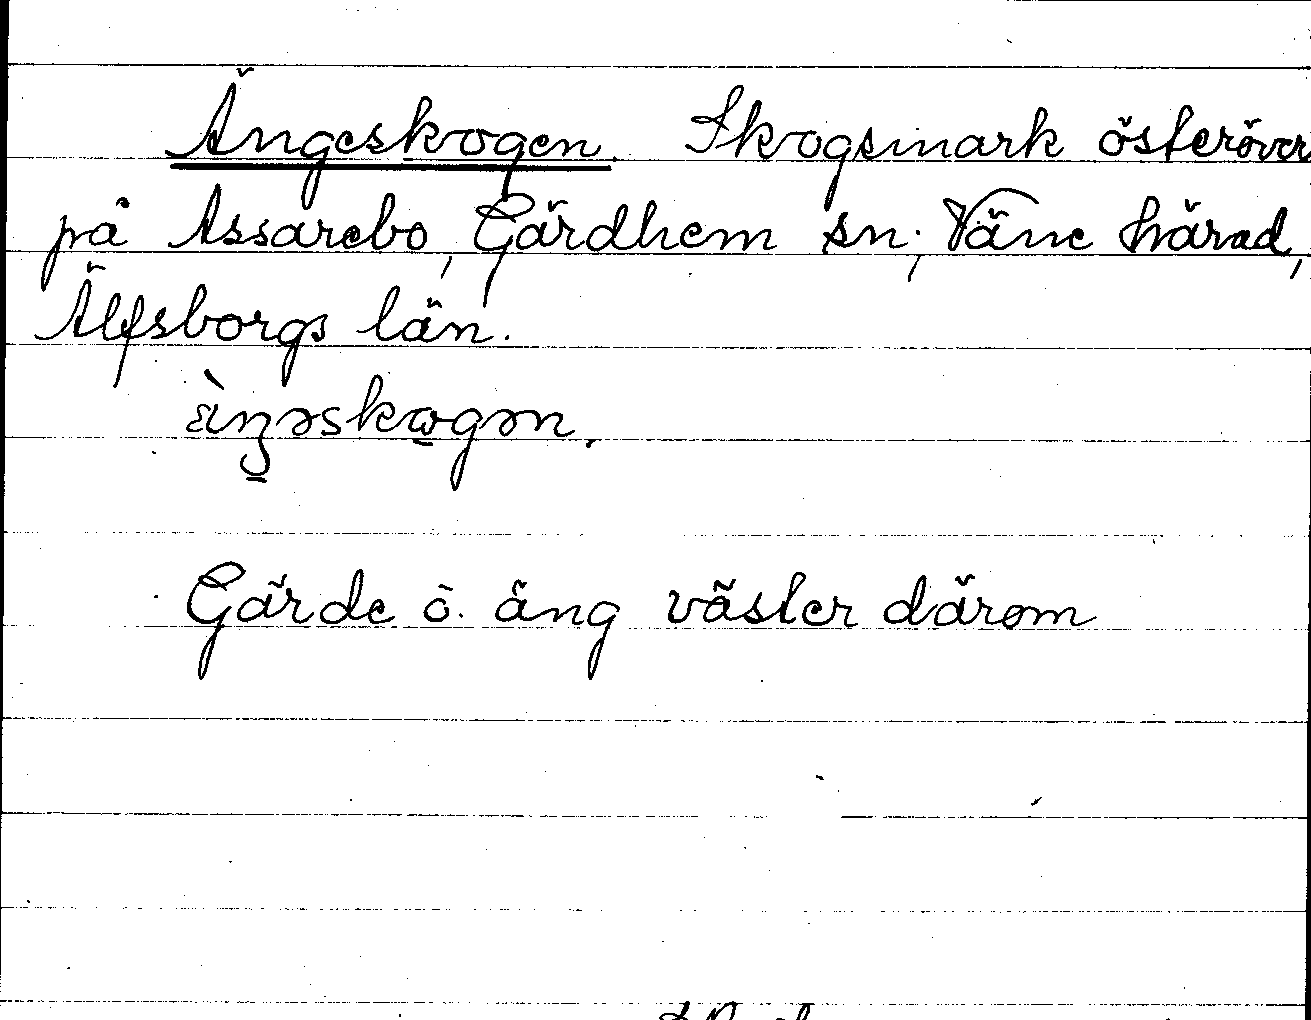 Ängeskogen. Skogsmark österöver
på Assarebo, Gärdhem sn, Väne härad,
Älfsborgs län.
ä̀ŋəskωgən.
Gärde o. äng väster därom